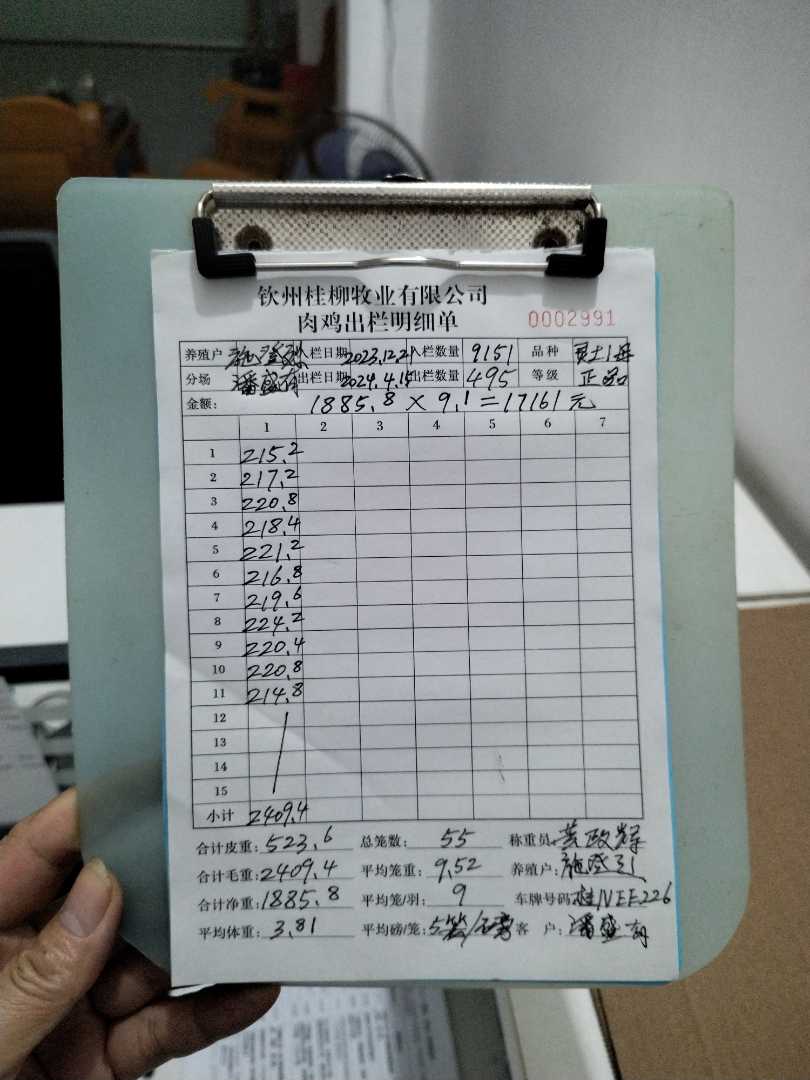 钦州桂柳牧业有限公司
肉鸡出栏明细单 0002991
养殖户 入栏日期 2023.12.21 入栏数量 9151 品种 灵土1母
分场 潘盛有 出栏日期 2024.4.15 出栏数量 495 等级 正品
金额: 1885.8 × 9.1 = 17161元
1 2 3 4 5 6 7
1 215.2
2 217.2
3 220.8
4 218.4
5 221.2
6 216.8
7 219.6
8 224.2
9 220.4
10 220.8
11 214.8
12
13
14
15
小计 2409.4
合计皮重: 523.6 总笼数: 55 称重员: 黄政辉
合计毛重: 2409.4 平均笼重: 9.52 养殖户:
合计净重: 1885.8 平均笼/羽: 9 车牌号码: 桂NEE226
平均体重: 3.81 平均磅/笼: 5笼/ 客 户: 潘盛有